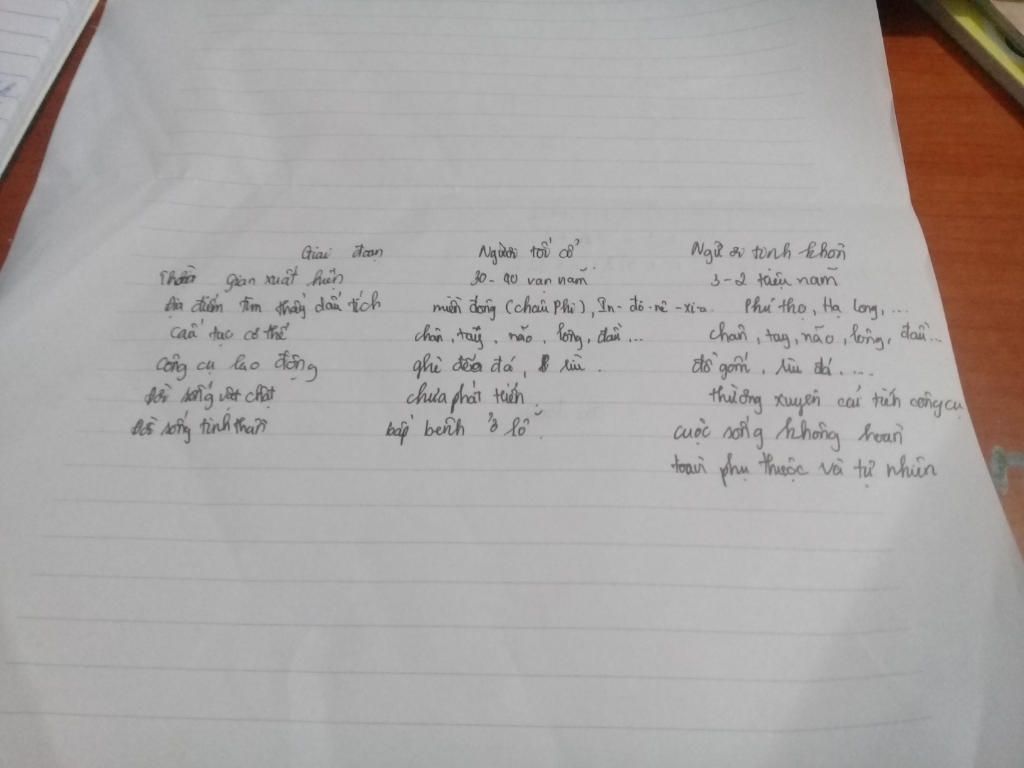 Giai đoạn Người tối cổ Người tinh khôn
Thời gian xuất hiện 30-40 vạn năm 3-2 triệu năm
Địa điểm tìm thấy dấu tích miền đông (châu Phi), In-đô-nê-xi-a Phú thọ, Hạ long,...
Cấu tạc cơ thể chân, tay, não, lông, đầu... chân, tay, não, lông, đầu...
Công cụ lao động ghè đẽo đá, rìu. đồ gốm, rìu đá....
Đời sống vật chất chưa phát triển. thường xuyên cải tiến công cụ
Đời sống tinh thần bấp bênh cuộc sống không hoàn
toàn phụ thuộc và tự nhiên